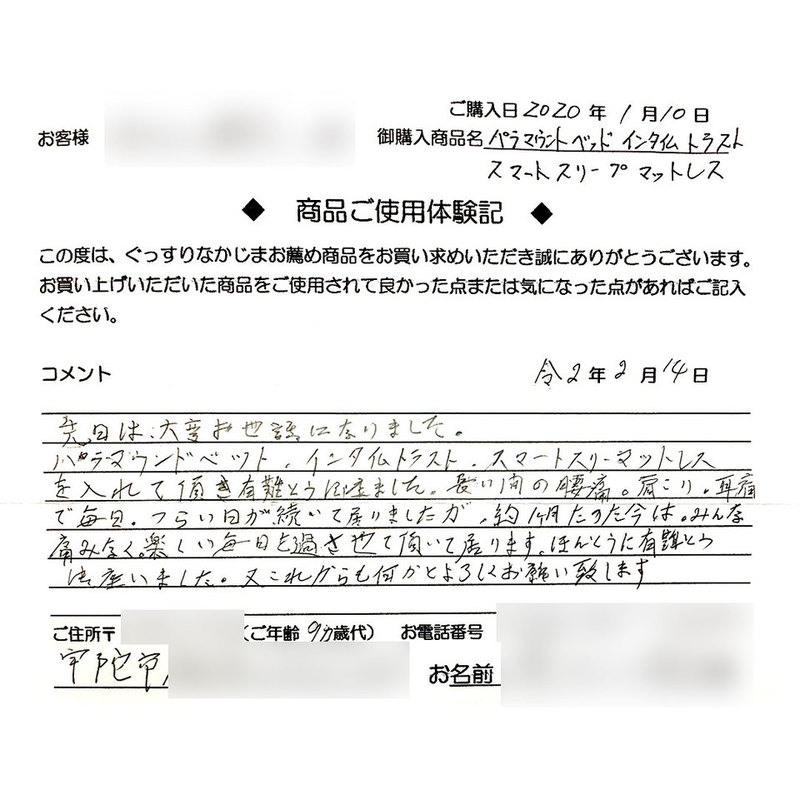 ご購入日2020年1月10日
お客様
御購入商品名 パラマウントベッド インタイムトラスト
スマートスリープマットレス
◆ 商品ご使用体験記 ◆
この度は、ぐっすりなかじまお薦め商品をお買い求めいただき誠にありがとうございます。
お買い上げいただいた商品をご使用されて良かった点または気になった点があればご記入
ください。
コメント
令2年2月14日
先日は、大変お世話になりました。
パラマウンドベット、インタイムトラスト、スマートスリーマットレス
を入れて頂き有難とう御座ました。長い間の腰痛。肩こり、耳痛
で毎日、つらい日が続いて居りましたが、約1ヶ月たった今は。みんな
痛みなく。楽しい毎日を過させて頂いて居ります。ほんとうに有難とう
御座いました。又これからも何かとよろしくお願い致します
ご住所〒
(ご年齢 90歳代)
お電話番号
宇陀市
お名前